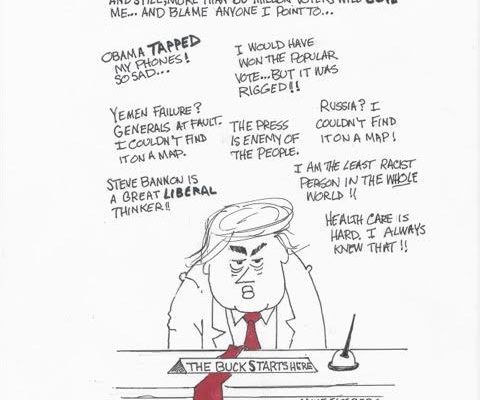 ME... AND BLAME ANYONE I POINT TO...
OBAMA TAPPED
MY PHONES!
SO SAD...
I WOULD HAVE
WON THE POPULAR
VOTE...BUT IT WAS
RIGGED!!
YEMEN FAILURE?
GENERALS AT FAULT.
I COULDN'T FIND
IT ON A MAP.
THE PRESS
IS ENEMY OF
THE PEOPLE.
RUSSIA? I
COULDN'T FIND
IT ON A MAP!
STEVE BANNON IS
A GREAT LIBERAL
THINKER!!
I AM THE LEAST RACIST
PERSON IN THE WHOLE
WORLD!!
HEALTH CARE IS
HARD. I ALWAYS
KNEW THAT!!
THE BUCK STARTS HERE